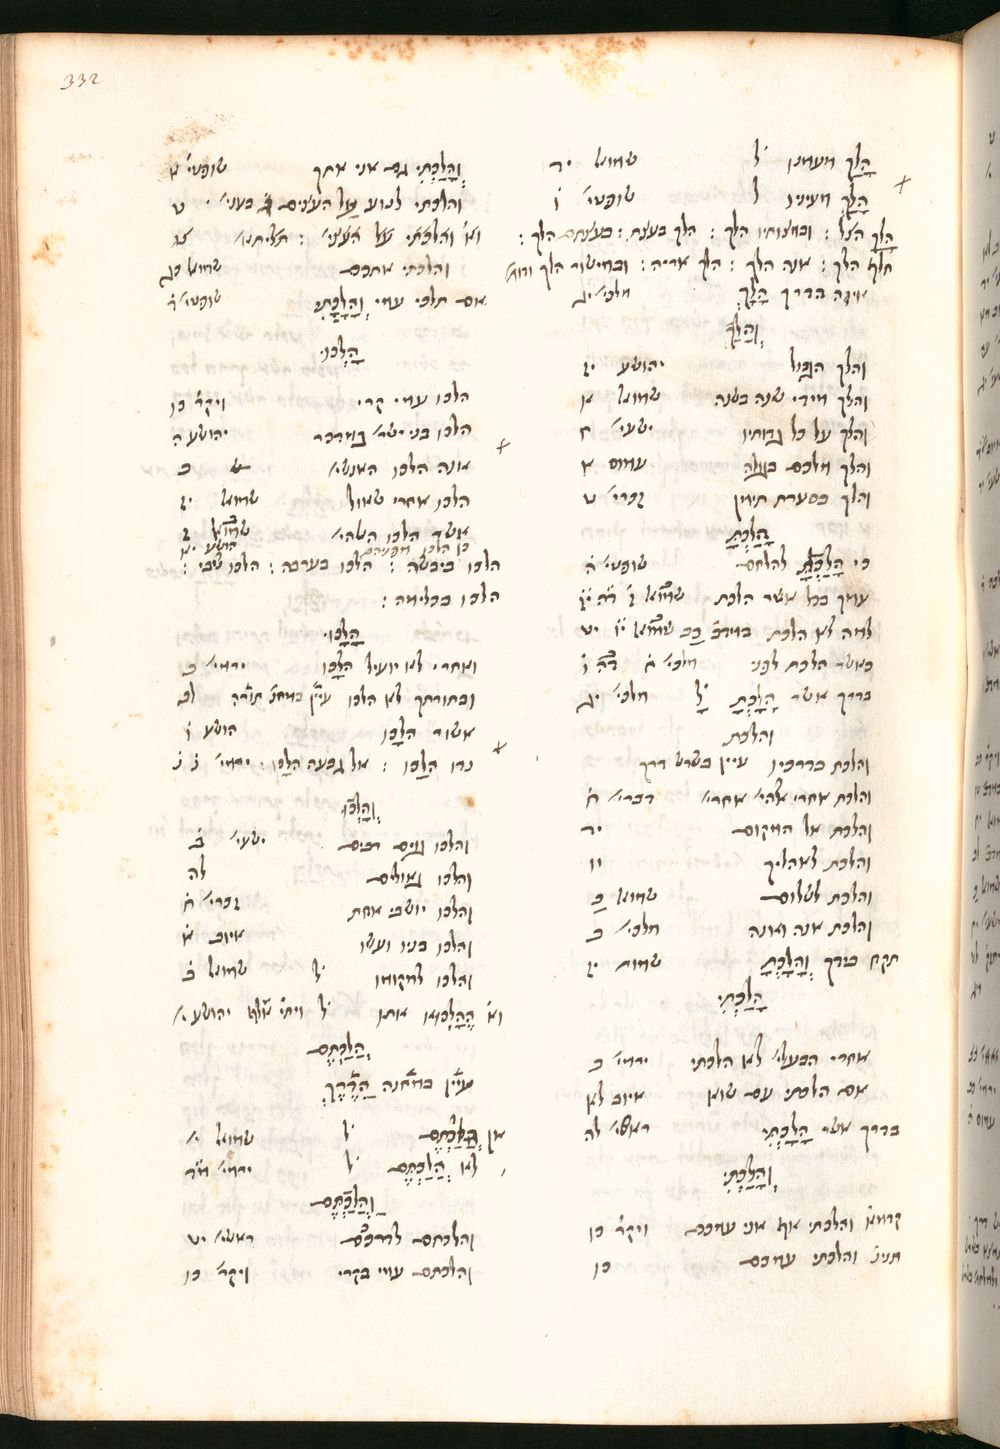 332
הָלַךְ מעמנו ל' שמואל יד
הָלַךְ מעינו ל שופטי' ו
הָלַךְ הצל : ובחצותיו הלך : הלך בעצת : בעצתם הלך :
חלף הלך : אנה הלך : הלך אריה : ובמישור הלך
אי זה הדרך הָלָךְ מלכי' יג
וְהָלַךְ
והלך הגבול יהושע יז
והלך מידי שנה בשנה שמואל א ז
והלך על כל גדותיו ישעי' ח
והלך מלכם בגולה עמוס א
והלך בסערת תימן זכרי' ט
הָלַכְתָּ
כי הָלַכְתָּ להלחם שופטי' ח
עמך בכל אשר הלכת שמואל ז'
למה לא הלכת
כאשר הלכת לפני מלכי' ח
בדרך אשר הָלָכְתָּ ל' מלכי' יג
והלכת
והלכת בדרכיו עיין בשרש דרך
והלכת אחרי אלהי' אחרי' דברי' ח
והלכת אל המקום יד
והלכת לאהליך יו
והלכת לשלום שמואל ב
והלכת אנה ואנה מלכי' ב
תקח בידך וְהָלָכְתָּ שמות יז
הָלַכְתִּי
אחרי הבעלי' לא הלכתי ירמי' ב
אם הלכתי עם שוא איוב לא
בדרך אשר הָלָכְתִּי ראשי' לה
וְהָלַכְתִּי
קדמא' והלכתי אף אני עמכם ויקר' כו
תנינ' והלכתי עמכם כו
וְהָלַכְתִּי גם אני אתך שופטי' א
והלכתי לנוע על העצים בעני' ט
וא' והלכתי על העצי' : תליתא'
והלכתי אתכם שמואל כג
אם תלכי עמי וְהָלָכְתִּי שופטי' ד
הָלְכוּ
הלכו עמי קרי ויקר' כו
הלכו בני ישר' במדבר יהושע ה
אנה הלכו האנשי' ב
הלכו אחרי שאול שמואל יז
אשר הלכו השה'
כן הלכו מפניהם הושע יא
הלכו ביבשה : הלכו בערבה : הלכו שבי :
הלכו בכלימה :
הָלָכוּ
ואחרי לא יועילו הלכו ירמי' ב
ובתורתך לא הלכו
אשור הלכו הושע ו
נדו הלכו : אל גבעה הלכו : ירמי' נ נ
וְהָלְכוּ
והלכו גוים רבים ישעי' ב
והלכו גאולים לה
והלכו יושבי אחת זכרי' ח
והלכו בניו ועשו איוב א
והלכו למקומו ל' שמואל ב
וא' הֶהָלְכוּא אתו ל' יהושע י'
הֲלַכְתֶּם
עיין במחנה הַדֶּרֶךְ
אן הֲלַכְתֶּם ל' שמואל י'
לא הֲלַכְתֶּם ל' ירמי'
וַהֲלַכְתֶּם
והלכתם לדרככם ראשי' יט
והלכתם עמי בקרי ויקר' כו